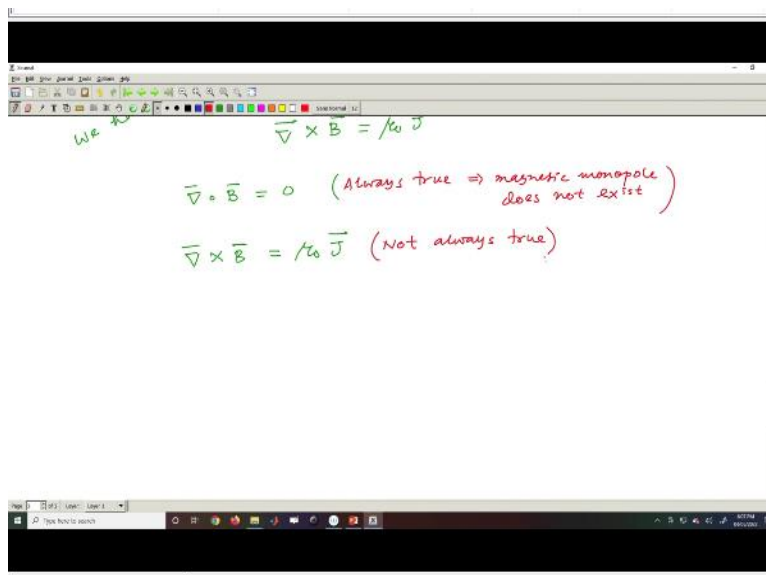 Xournal
File Edit View Journal Tools Options Help
Sans Normal 12
We
∇̄ × B̄ = μ₀ J̄
∇̄ • B̄ = 0 (Always true ⇒ magnetic monopole
does not exist)
∇̄ × B̄ = μ₀ J̄ (Not always true)
Page 3 of 3 Layer: Layer 1
Type here to search